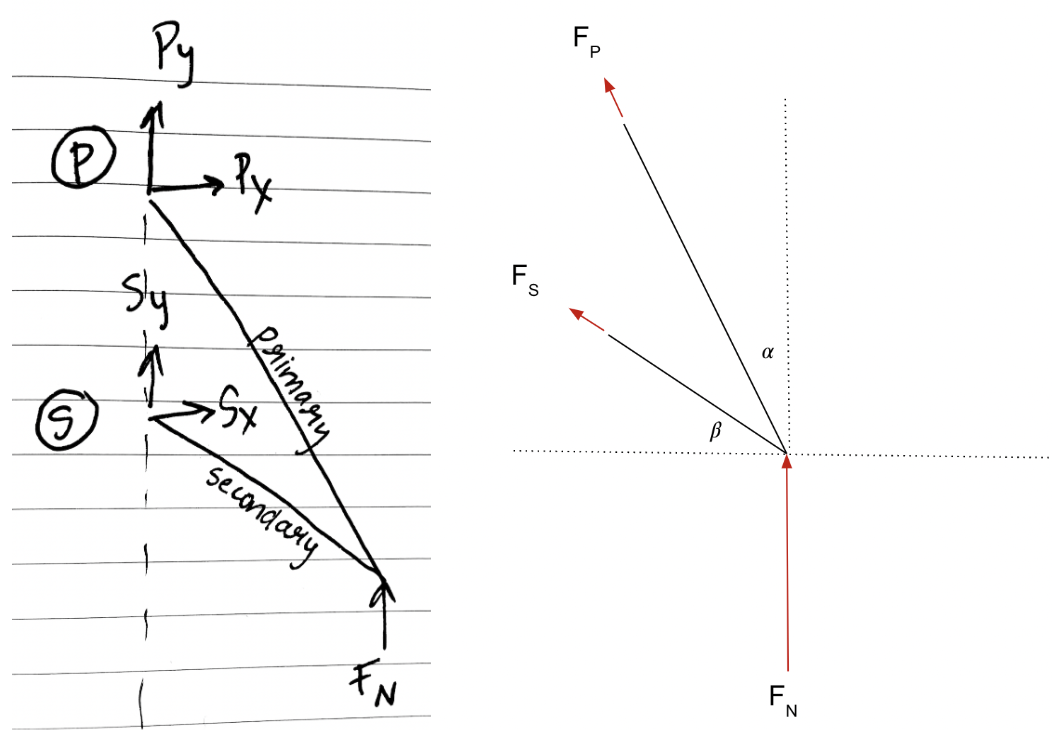 Py
P
Px
Sy
S
Sx
primary
secondary
FN
FP
FS
α
β
FN